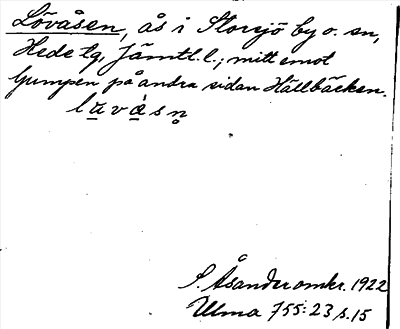 Lövåsen, ås i Storsjö by o. sn,
Hede tg, Jämtl. l.; mitt emot
Gumpen på andra sidan Hällbäcken.
lu̲våsn̥
S. Åsander omkr. 1922
Ulma 755:23 s. 15